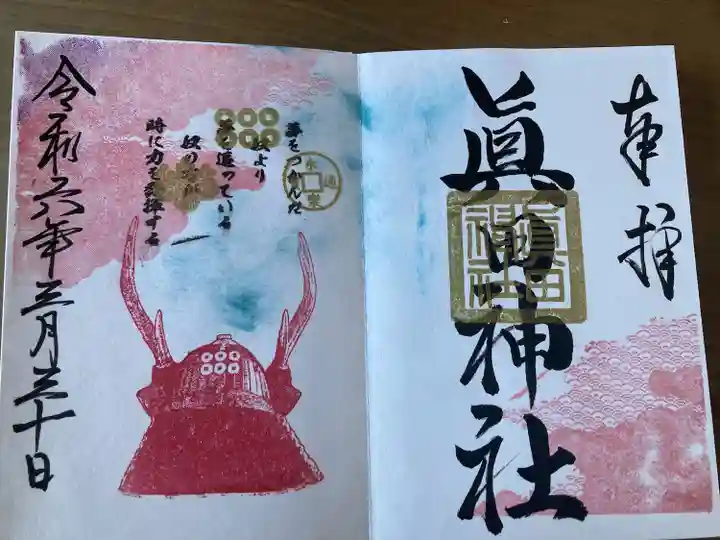 奉拝
眞田神社
眞田
神社
夢をつかんだ
奴より
夢を追っている
奴の方が
時に力を発揮する
永楽通宝
令和六年三月三十日